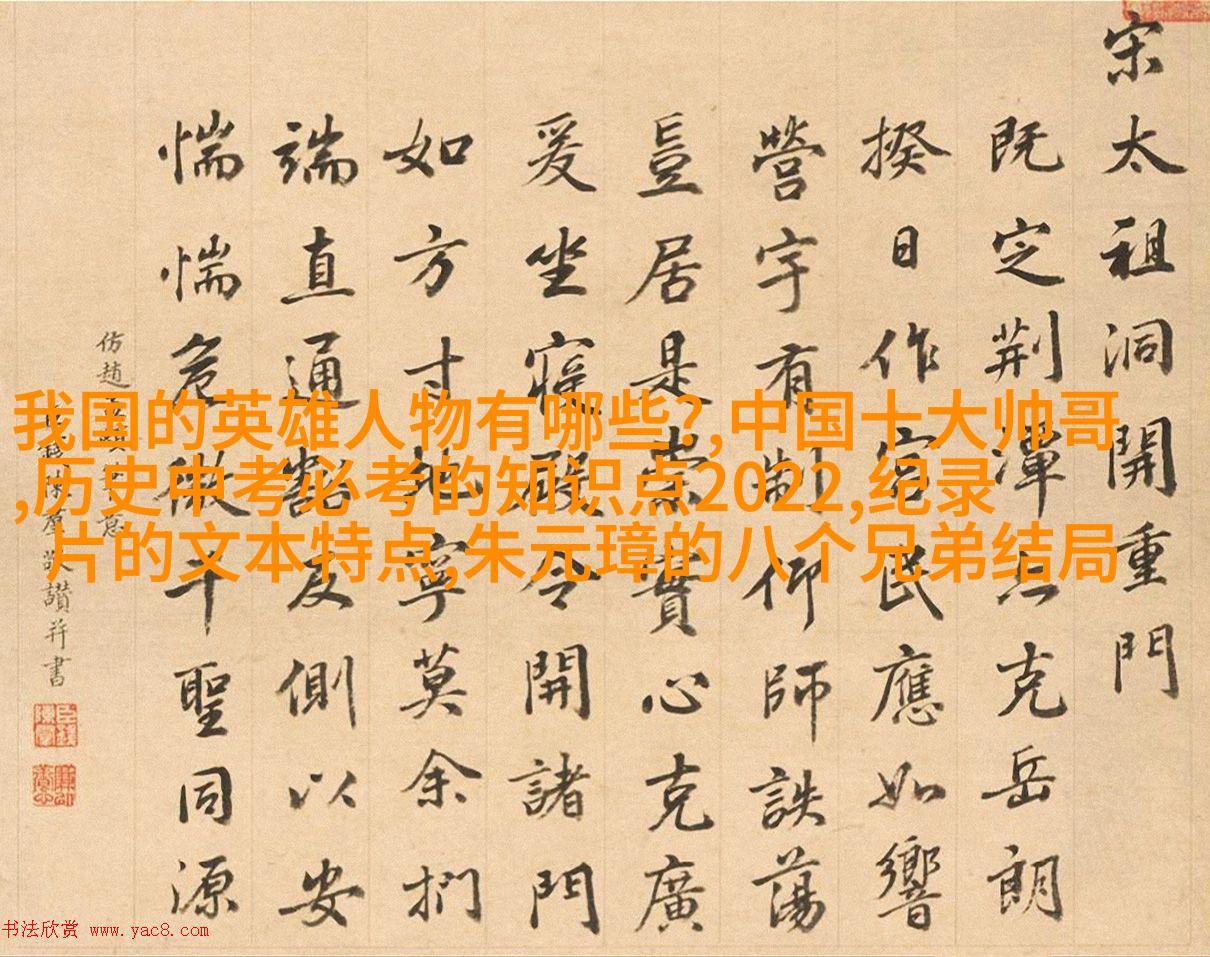 宋太祖洞開重門
既定荆潭克岳朗
揆日作宫民應如響
營宇有制仰師訣蕩
豈居是崇實心克廣
爰坐寢殿令開諸門
如方寸地寧莫余捫
端直通豁反側以安
惴惴危微千聖同源
仿趙意
陳羣敬讚并書
我国的英雄人物有哪些?,中国十大帅哥
,历史中考必考的知识点2022,纪录
片的文本特点,朱元璋的八个兄弟结局
书法欣赏 www.yac8.com